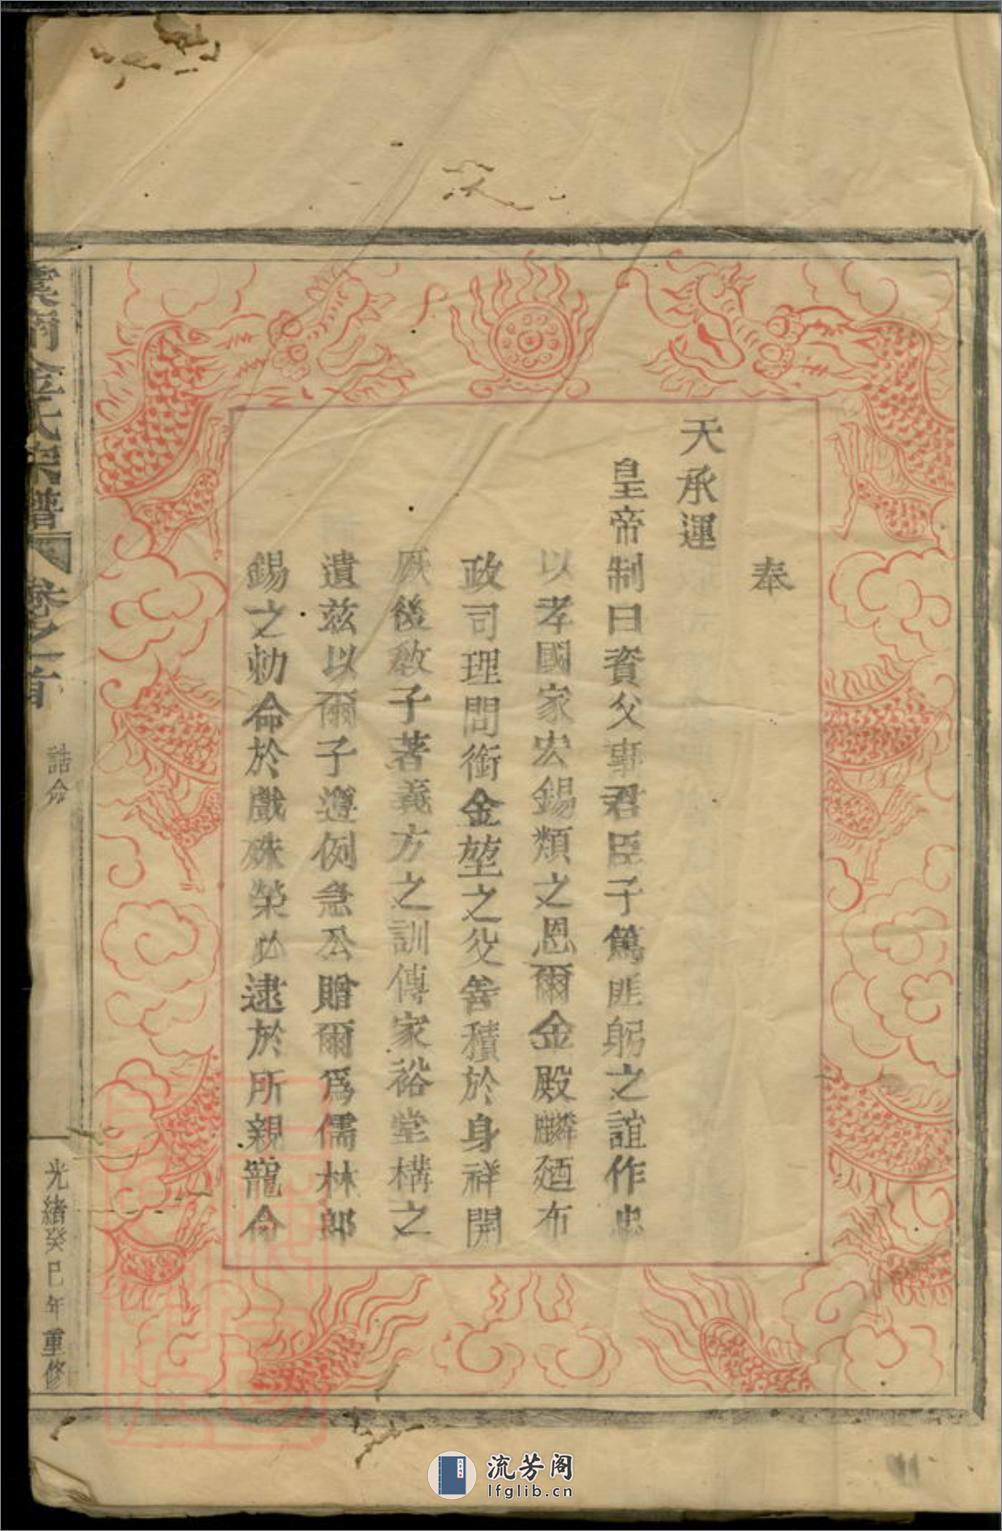 奉
天承運
皇帝制曰資父事君臣子篤匪躬之誼作忠
以孝國家宏錫類之恩爾金殿麟廼布
政司理問銜金堃之父善積於身祥開
厥後教子著義方之訓傳家裕堂構之
遺茲以爾子遵例急公贈爾為儒林郎
錫之勅命於戲殊榮必逮於所親寵命
金氏宗譜 卷之首
誥命
光緒癸巳年重修
流芳阁
lfglib.cn